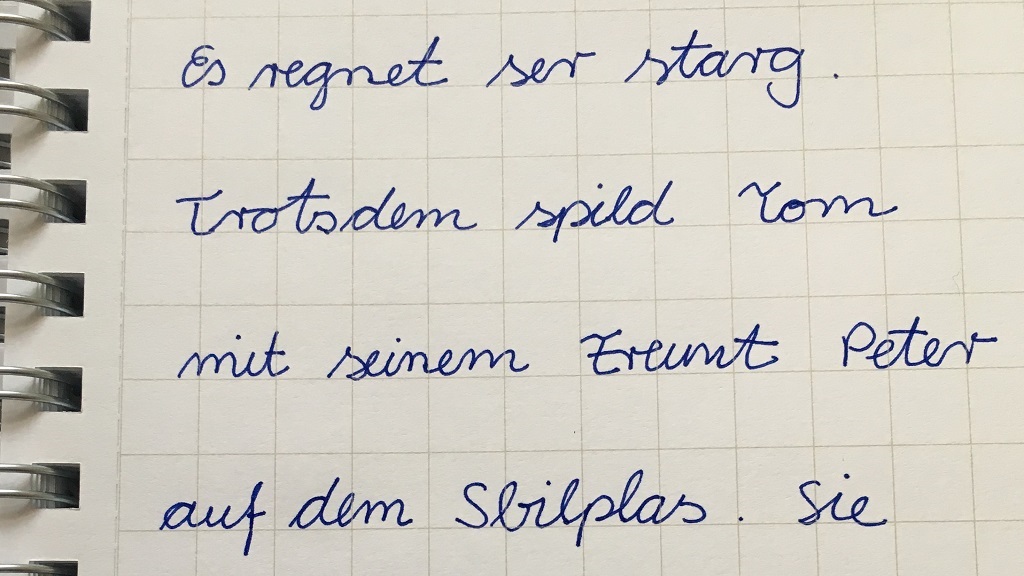 Es regnet ser starg.
Trotsdem spild Tom
mit seinem Freunt Peter
auf dem Sbilplas. Sie